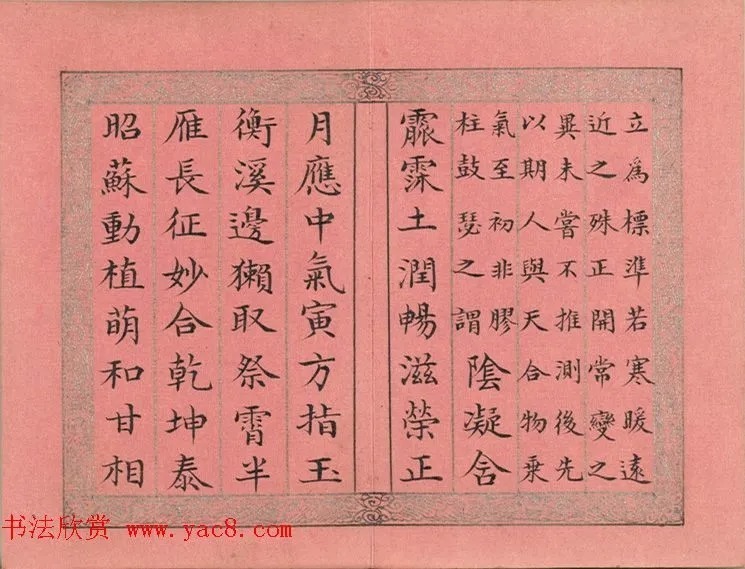 立為標準若寒暖遠
近之殊正開常變之
異未嘗不推測後先
以期人與天合物乘
氣至初非膠
柱鼓瑟之謂陰凝含
霡霂土潤暢滋榮正
月應中氣寅方指玉
衡溪邊獺取祭霄半
雁長征妙合乾坤泰
昭蘇動植萌和甘相
书法欣赏 www.yac8.com